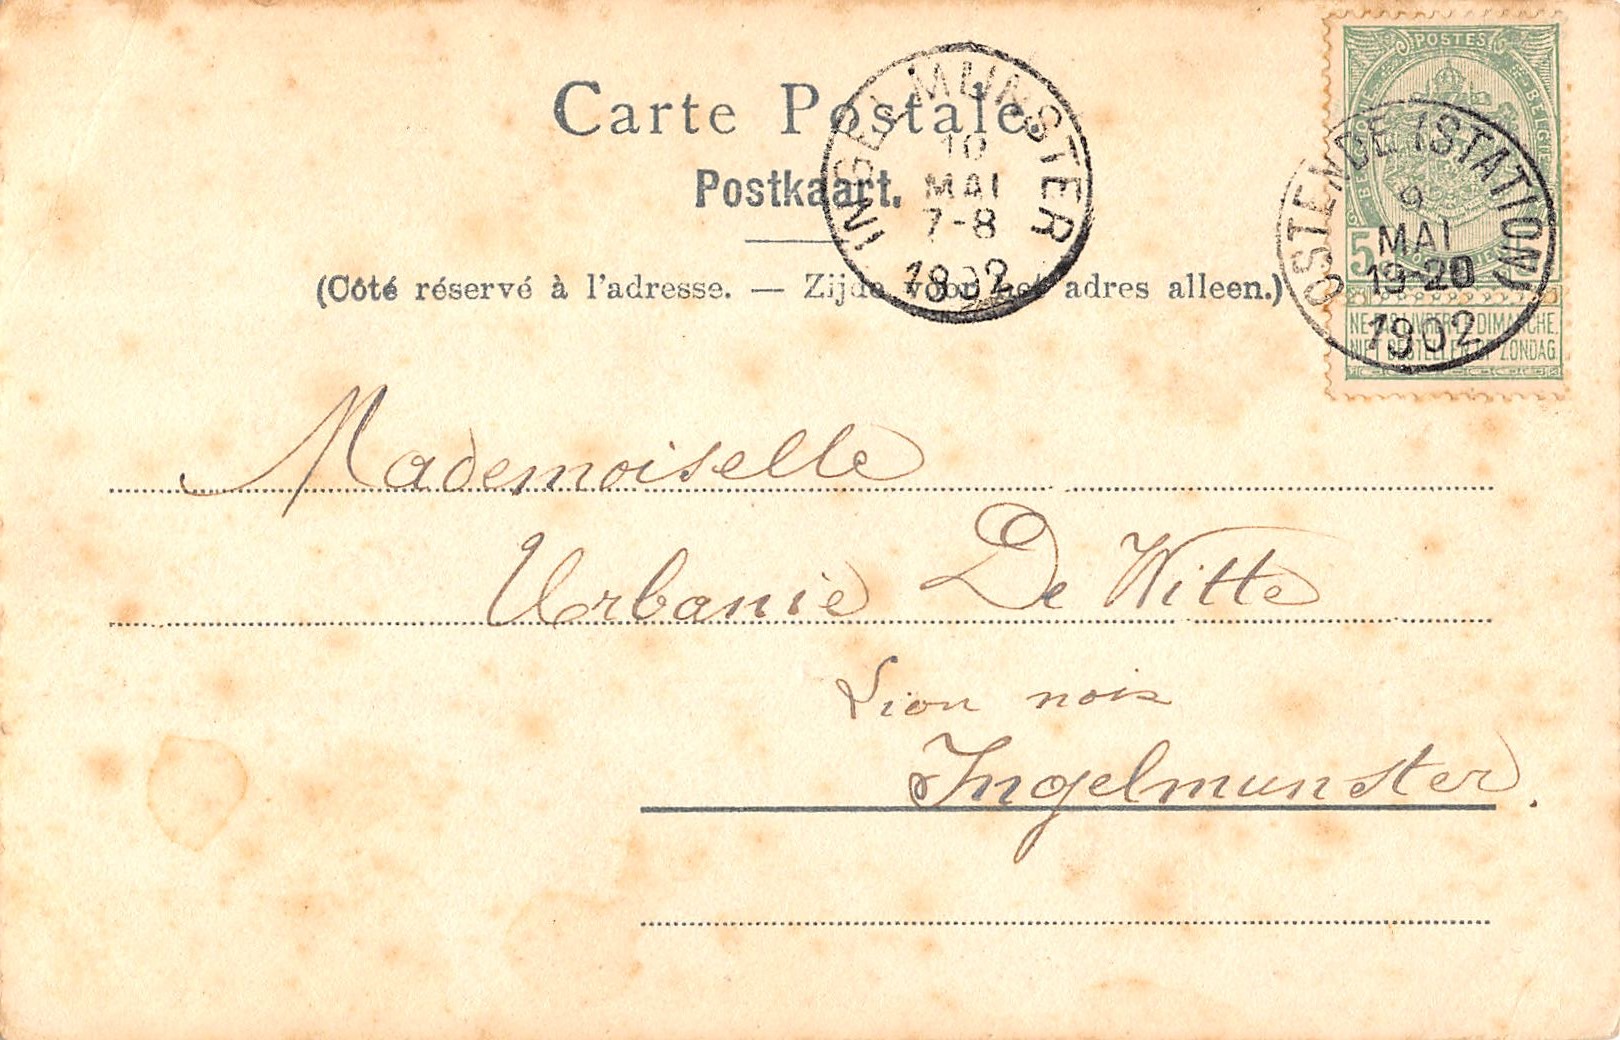 Carte Postale.
Postkaart.
(Côté réservé à l'adresse. — Zijde voor het adres alleen.)
INGELMUNSTER
10
MAI
7-8
1902
POSTES
BELGIQUE
5
OSTENDE (STATION)
9
MAI
19-20
1902
NE PAS LIVRER LE DIMANCHE.
NIET BESTELLEN OP ZONDAG
Mademoiselle
Urbanie De Witte
Lion noir
Ingelmunster.